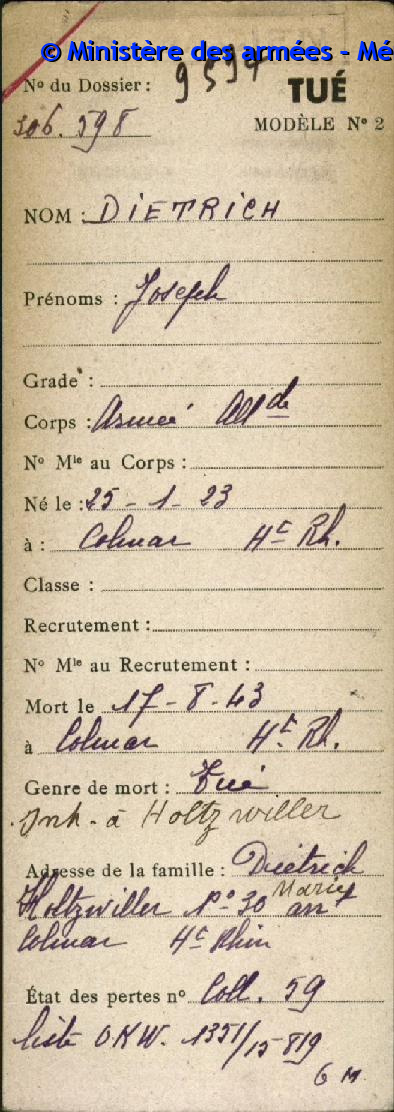 © Ministère des armées - Mé
9594
N° du Dossier :
TUÉ
306.598
MODÈLE N° 2
NOM : DIETRICH
Prénoms : Joseph
Grade :
Corps : Armée Allde
N° Mle au Corps :
Né le : 25 - 1 - 23
à : Colmar Ht Rh.
Classe :
Recrutement :
N° Mle au Recrutement :
Mort le 17 - 8 - 43
à Colmar Ht Rh.
Genre de mort : Tué
Inh. à Holtzwiller
Adresse de la famille : Dietrich
Holtzwiller N° 30
Colmar Ht Rhin
État des pertes n° Coll. 59
liste OKW. 1351/15-819
6 M